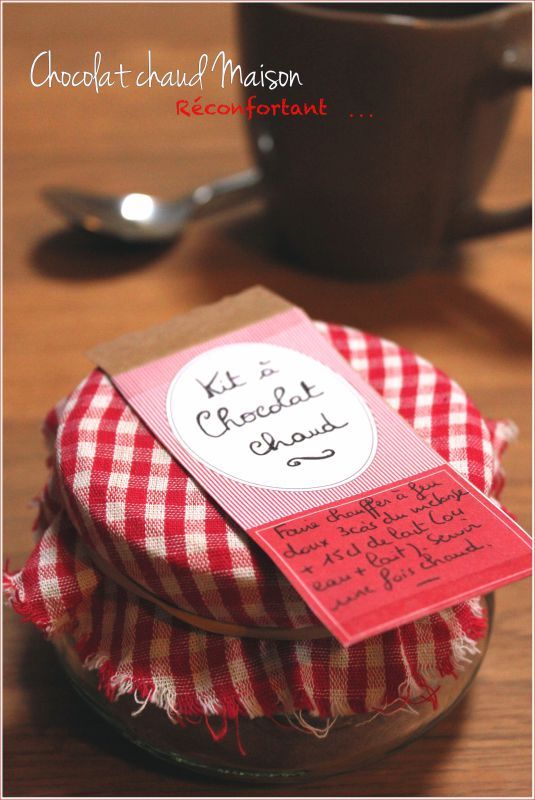 Chocolat chaud Maison
Réconfortant ...
Kit à
Chocolat
chaud
Faire chauffer à feu
doux 3càs du mélange
+ 15cl de lait (ou
eau + lait). Servir
une fois chaud.